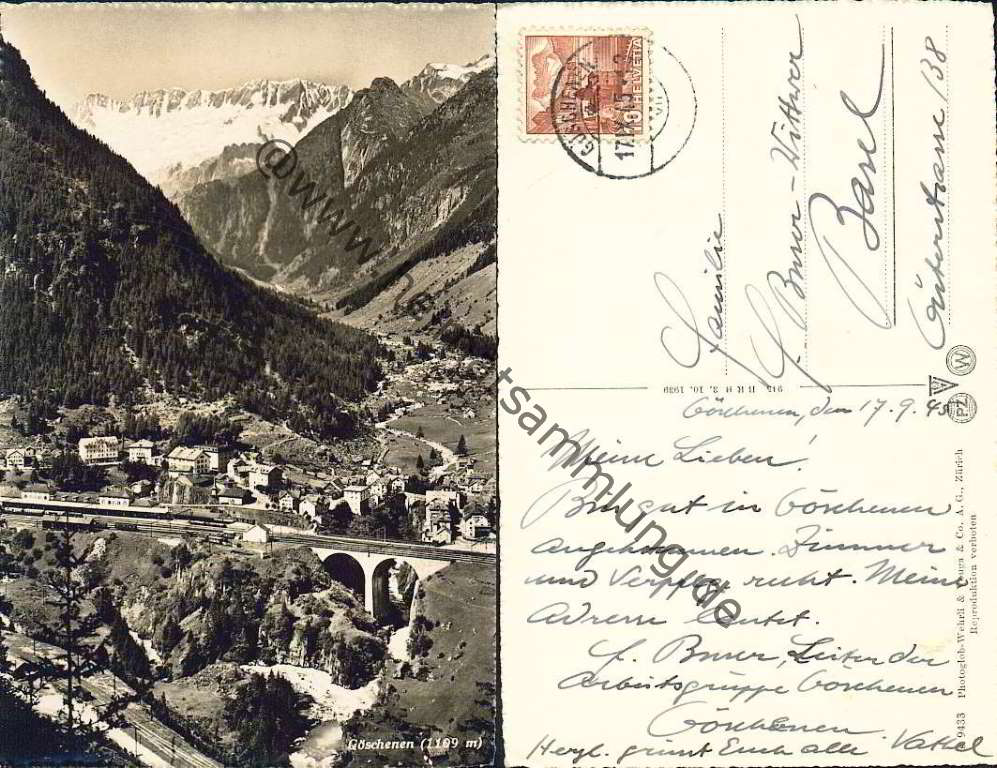 Göschenen (1109 m)
HELVETIA
10
GÖSCHENEN
17.IX.45
Familie
F. Buser-Wittwer
Basel
Güterstrasse 138
915 BRB 3. 10. 1939
W
PZ
Göschenen, den 17.9.45
Meine Lieben!
Bin gut in Göschenen
angekommen. Zimmer
und Verpfleg. recht. Meine
Adresse lautet.
F. Buser, Leiter der
Arbeitsgruppe Göschenen
Göschenen
Herzl. grüsst Euch alle Vati
9433 Photoglob-Wehrli & Vouga & Co. A. G., Zürich
Reproduktion verboten
@www.
tsammlung.de